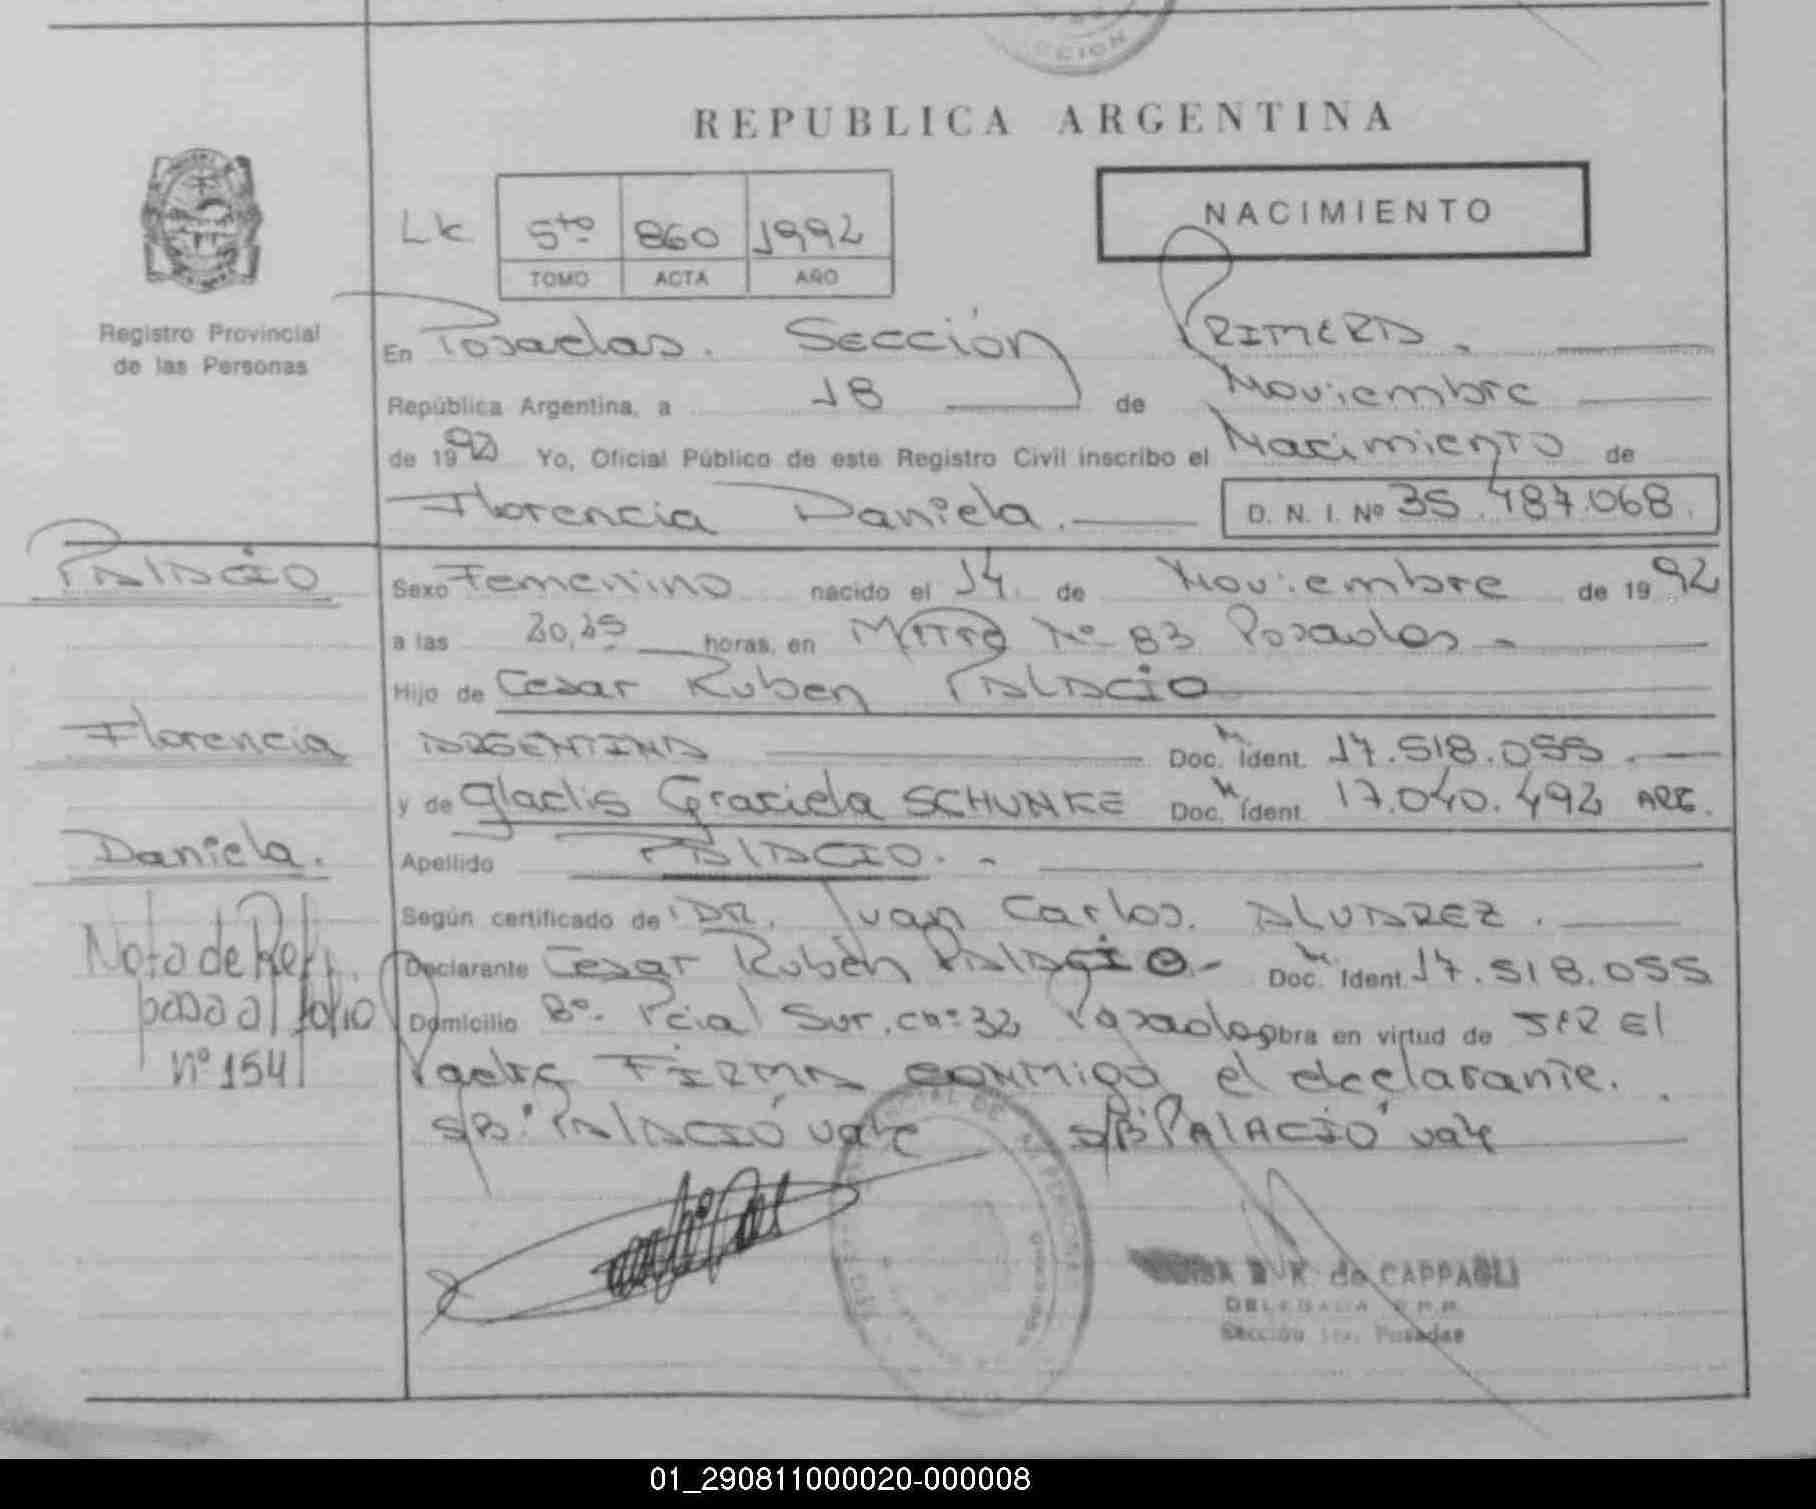 REPUBLICA ARGENTINA
NACIMIENTO
5to 860 1992
TOMO ACTA AÑO
Registro Provincial
de las Personas
En Posadas. Sección PRIMERA.
República Argentina, a 18 de Noviembre
de 1992 Yo, Oficial Público de este Registro Civil inscribo el Nacimiento de
Florencia Daniela. D. N. I. Nº 35.487.068.
PALACIO
Sexo Femenino nacido el 14 de Noviembre de 1992
a las horas, en Mitre Nº 83 Posadas
Hijo de Cesar Ruben PALACIO
Florencia
ARGENTINA Doc. Ident. 17.518.055.
y de Gladis Graciela SCHUNKE Doc. Ident. 17.040.492 ARG.
Daniela.
Apellido PALACIO.
Según certificado de DR. Juan Carlos. ALVAREZ.
Nota de Ref.
pasa al folio
nº 154
Declarante Cesar Rubén PALACIO.- Doc. Ident. 17.518.055
Domicilio Bº. Pcial Sur. cª: 32 Posadas obra en virtud de SER El
Padre FIRMA CONMIGO el declarante.
S/B: "PALACIO" vale S/B "PALACIO" vale
de CAPPAGLI
DELEGADA R.P.P.
Sección 1ra. Posadas
01_290811000020-000008